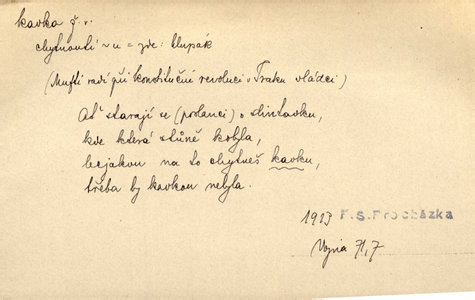 kavka ž. r.
chytnouti ~u = zde: hlupák
(Mufti radí při konstituční revoluci v Iraku vládci)
Ať starají se (poslanci) o slintavku,
kde která stůně kobyla,
lecjakou na to chytneš kavku,
třeba by kavkou nebyla.
1913 F.S.Procházka
Vojna 71,7